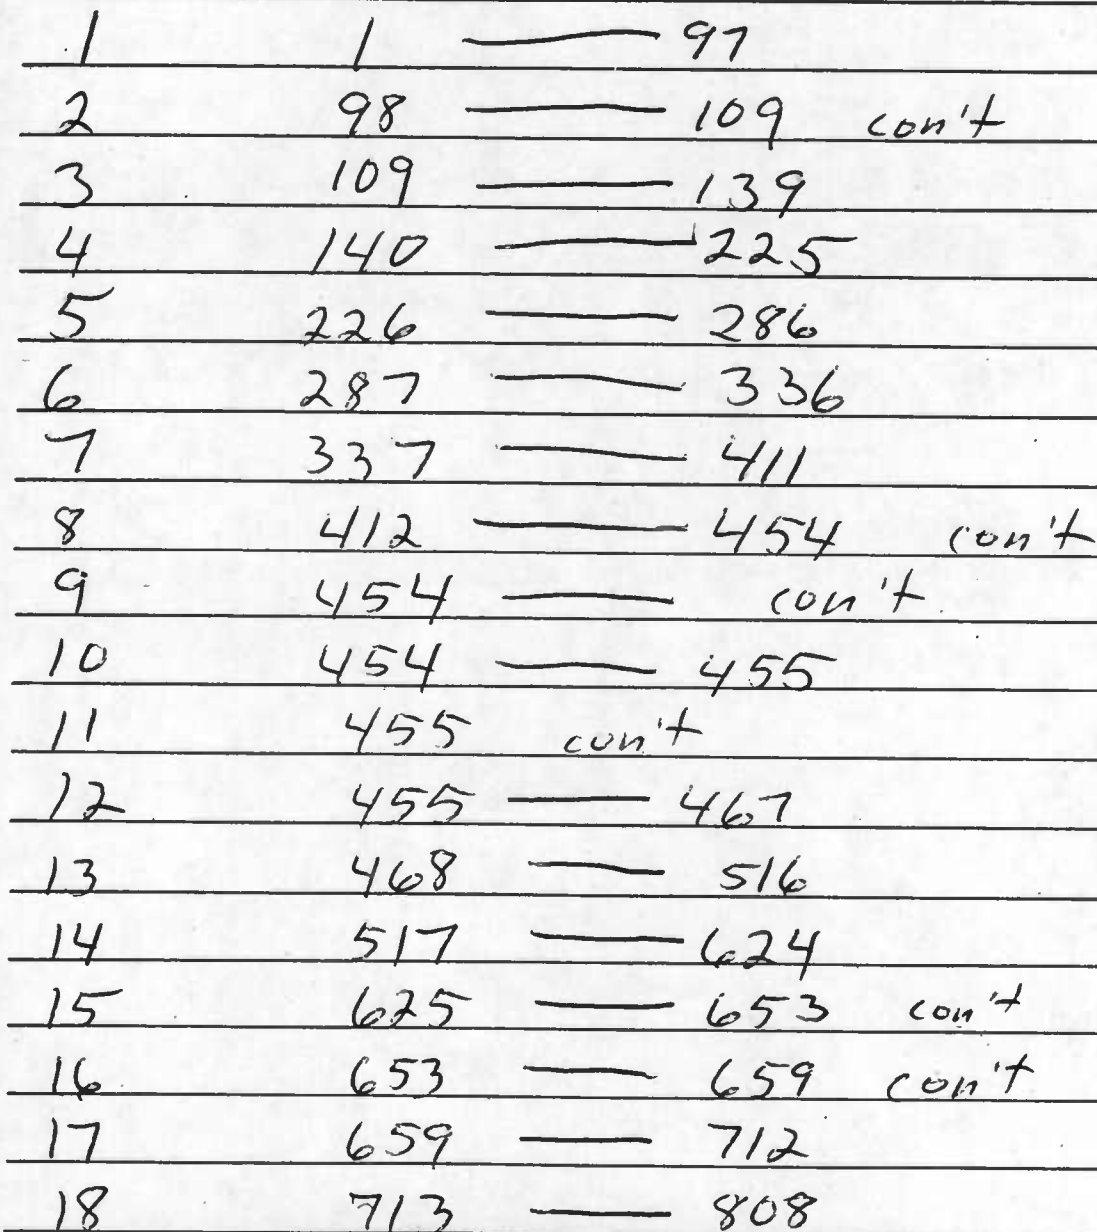 1 1 — 97
2 98 — 109 con't
3 109 — 139
4 140 — 225
5 226 — 286
6 287 — 336
7 337 — 411
8 412 — 454 con't
9 454 — con't
10 454 — 455
11 455 con't
12 455 — 467
13 468 — 516
14 517 — 624
15 625 — 653 con't
16 653 — 659 con't
17 659 — 712
18 713 — 808